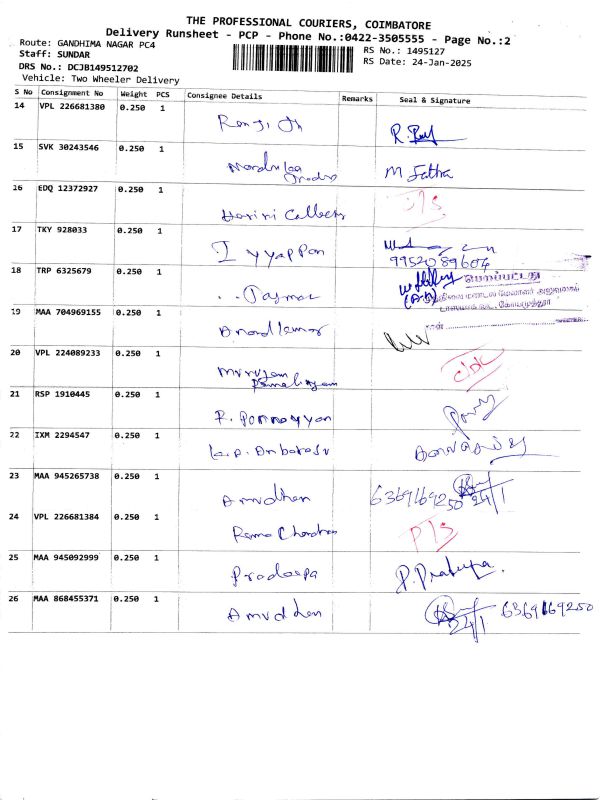 THE PROFESSIONAL COURIERS, COIMBATORE
Delivery Runsheet - PCP - Phone No.:0422-3505555 - Page No.:2
Route: GANDHIMA NAGAR PC4
RS No.: 1495127
Staff: SUNDAR
RS Date: 24-Jan-2025
DRS No.: DCJB149512702
Vehicle: Two Wheeler Delivery
S No Consignment No Weight PCS Consignee Details Remarks Seal & Signature
14 VPL 226681380 0.250 1
15 SVK 30243546 0.250 1 M Latha
16 EDQ 12372927 0.250 1 Harini Collects
17 TKY 928033 0.250 1 Iyyappan
9952089604
18 TRP 6325679 0.250 1 பெறப்பட்டது
19 MAA 704969155 0.250 1 Anandkumar
20 VPL 224089233 0.250 1 Murugan
21 RSP 1910445 0.250 1 P. Ponnayyan
22 IXM 2294547 0.250 1 K.P. Anbarasu
23 MAA 945265738 0.250 1 Amudhan 6369169250 24/1
24 VPL 226681384 0.250 1 Rama Chandran P/S
25 MAA 945092999 0.250 1 Pradeepa P. Pradeepa
26 MAA 868455371 0.250 1 Amudhan 24/1 6369169250